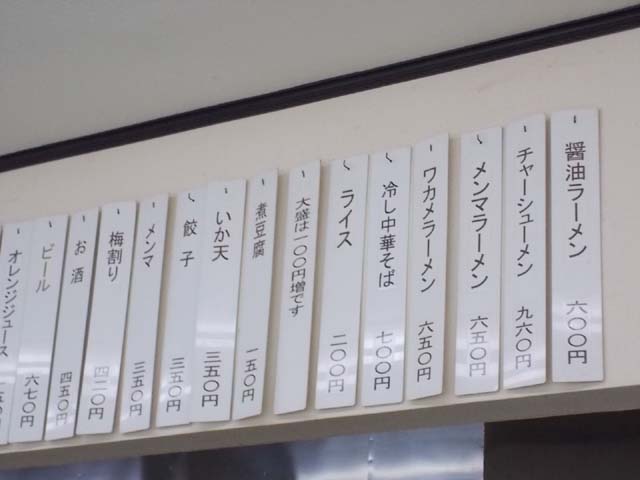 醤油ラーメン 六〇〇円
チャーシューメン 九六〇円
メンマラーメン 六五〇円
ワカメラーメン 六五〇円
冷し中華そば 七〇〇円
ライス 二〇〇円
大盛は一〇〇円増です
煮豆腐 一五〇円
いか天 三五〇円
餃子 三五〇円
メンマ 三五〇円
梅割り 四二〇円
お酒 四五〇円
ビール 六七〇円
オレンジジュース 五〇円